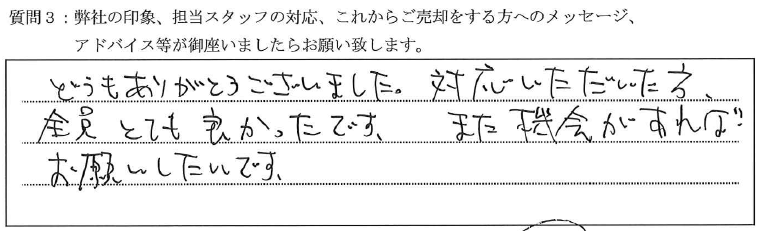 質問３：弊社の印象、担当スタッフの対応、これからご売却をする方へのメッセージ、
アドバイス等が御座いましたらお願い致します。
どうもありがとうございました。対応いただいた方、
全員とても良かったです、また機会があれば
お願いしたいです、